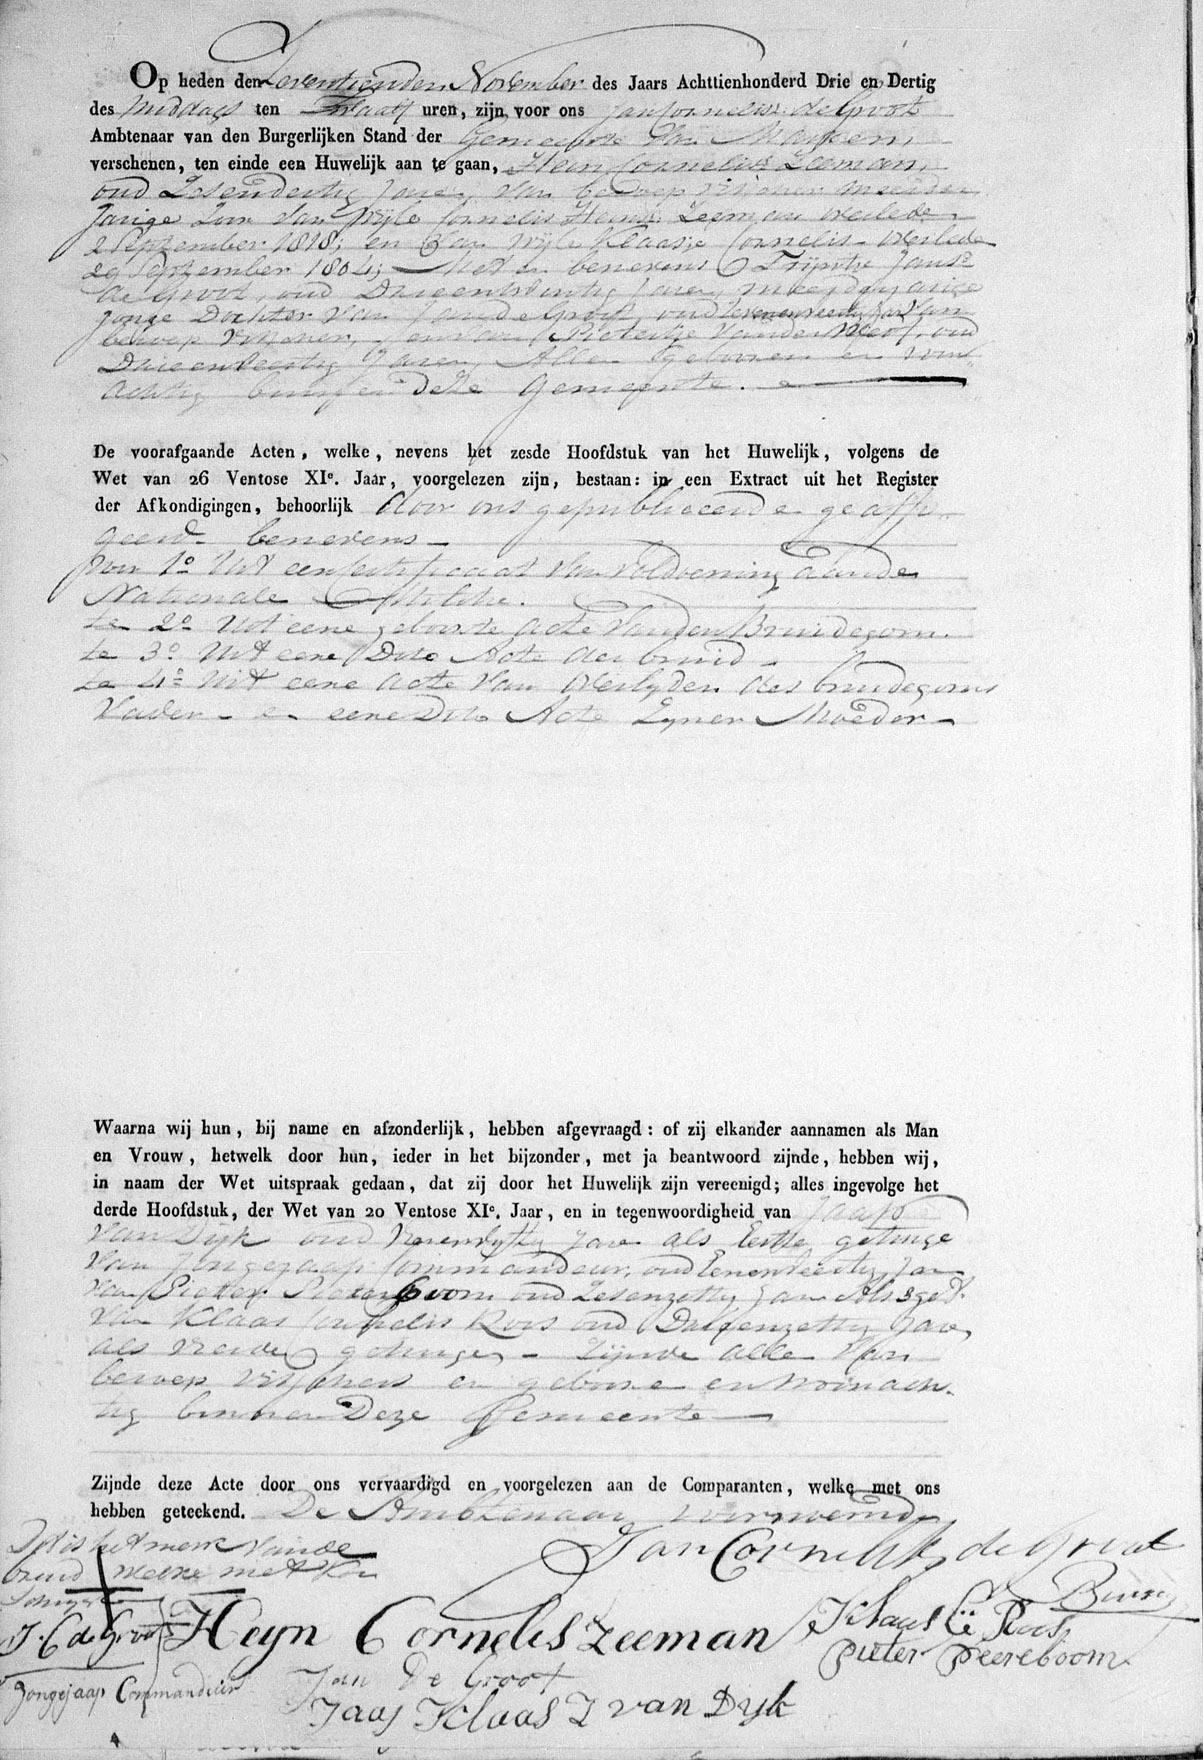 Op heden den Zeventienden November des Jaars Achttienhonderd Drie en Dertig
des Middags ten Twaalf uren, zijn, voor ons Jan Cornelisz: de Groot
Ambtenaar van den Burgerlijken Stand der Gemeente van Marken,
verschenen, ten einde een Huwelijk aan te gaan, Hein Cornelisz Zeeman,
oud Zesendertig Jaren, van beroep visscher
Jarige Zoon van Wijle Cornelis Heinsz: Zeeman overlede
2 September 1818; en van wijle Klaasje Cornelis overlede
29 September 1804; Met en benevens Trijntje Jansd
de Groot, oud Drieentwintig Jaren, meerderjarige
jonge Dochter van Jan de Groot, oud Jar van
beroep visscher, en van Pietertje van der oud
Drieenveertig Jaren, Alle geboren en won
achtig binnen deze gemeente.
De voorafgaande Acten, welke, nevens het zesde Hoofdstuk van het Huwelijk, volgens de
Wet van 26 Ventose XIe. Jaar, voorgelezen zijn, bestaan: in een Extract uit het Register
der Afkondigingen, behoorlijk door ons gepubliceerd e geaffi-
geerd benevens -
1o Uit een certificaat van voldoening aan de
Nationale Militie.
te 2o Uit eene geboorte acte van den Bruidegom.
te 3o Uit eene Dito Acte der bruid -
te 4o Uit eene acte van overlyden des bruidegoms
Vader - e eene Dito Acte Zyner Moeder -
Waarna wij hun, bij name en afzonderlijk, hebben afgevraagd: of zij elkander aannamen als Man
en Vrouw, hetwelk door hun, ieder in het bijzonder, met ja beantwoord zijnde, hebben wij,
in naam der Wet uitspraak gedaan, dat zij door het Huwelijk zijn vereenigd; alles ingevolge het
derde Hoofdstuk, der Wet van 20 Ventose XIe. Jaar, en in tegenwoordigheid van Jaap
van Dijk oud Jare als Eerste getuige
van Jongejaap Commandeur, oud Eenenveertig Jar
van Pieter Peereboom oud Zesenzestig Jare Als 3e get.
van Klaas Cornelis Roos oud Jare,
als vierde getuige, - Zijnde alle van
beroep visschers en gebore en woonach-
tig binnen Deze Gemeente -
Zijnde deze Acte door ons vervaardigd en voorgelezen aan de Comparanten, welke met ons
hebben geteekend. De Ambtenaar voornoemd
Jan Cornelisz de Groot
Dit is het merk van de
bruid welke niet kon
J. C. de Groot
Heyn Cornelis Zeeman
Klaas C Roos
pieter peereboom
Jongejaap Commandeur
Jan De Groot
Jaap Klaas Z van Dijk